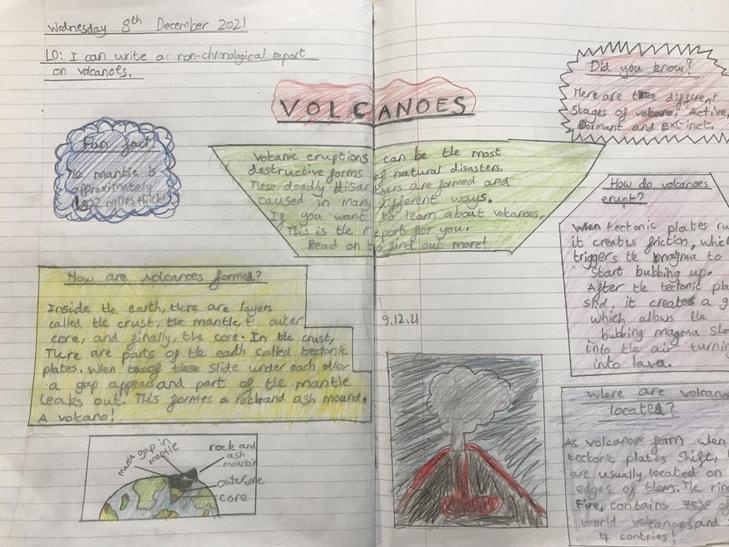 Wednesday 8th December 2021
LO: I can write a non-chronological report
on volcanoes.
VOLCANOES
Fun fact!
The mantle is
approximately
miles thick!
Volcanic eruptions can be the most
destructive forms of natural disasters.
These deadly disasters are formed and
caused in many different ways.
If you want to learn about volcanoes,
This is the report for you.
Read on to find out more!
How are volcanoes formed?
Inside the earth, there are layers
called the crust, the mantle, outer
core, and finally, the core. In the crust,
There are parts of the earth called tectonic
plates. When two of these slide under each other
a gap appears and part of the mantle
leaks out. This formes a rock and ash mound.
A volcano!
gap in
mantle
rock and
ash
mountain
outercore
core
9.12.21
Did you know?
There are different
Stages of Active,
Dormant and Extinct.
How do volcanoes
erupt?
When tectonic plates
it creates friction,
triggers the magma to
start bubbling up.
After the tectonic
it creates a
which allows the
bubbling magma
into the air turning
into lava.
Where are
located?
As volcanoes form when
tectonic plates shift,
are usually located on
edges of them. The
Fire, contains 75% of
world volcanoes and
contries!